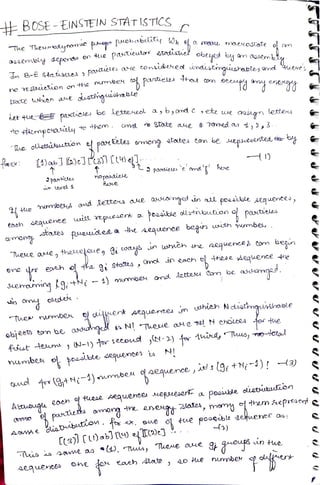 # BOSE-EINSTEIN STATISTICS
The Thermodynamic probability Wk of a macrostate of an
assembly depends on the particular statistics obeyed by an assembly.
In B-E statistics, particles are considered indistinguishable, and there's
no restriction on the number of particles that can occupy any energy
state which are distinguishable
Let the particles be lettered a, b, c and d etc we assign letters
to temporarily to them. and state are named as 1, 2, 3
The distribution of particles among states can be represented by
[(1)ab] [(2)c] [(3)] [(4)ef] (1)
2 particles no particle 2 particles 'e' and 'f' here
in level 1 here
If the numbers and letters are arranged in all possible sequences,
each sequence will represent a possible distribution of particles
among states, provided the sequence begin with number.
There are, therefore, gi ways in which the sequence can begin
one for each of the gi states, and in each of these sequence the
remaining (gi + Ni - 1) numbers and letters can be arranged.
in any order.
Then number of different sequences in which N distinguishable
objects can be arranged is N! There are N choices for the
first term, (N-1) for second, (N-2) for third. Thus, total
number of possible sequences is N!
and for (gi+Ni-1) number of sequence, it's (gi+Ni-1)! (3)
Although each of these sequences represent a possible distribution
of particles among the energy states, many of them represent
same distribution. for ex. one of the possible sequence as:
[(3)] [(1)ab] [(4)ef] [(2)c]
This is same as (1). Thus, There are gi groups in the
sequences one for each state, so the number of different